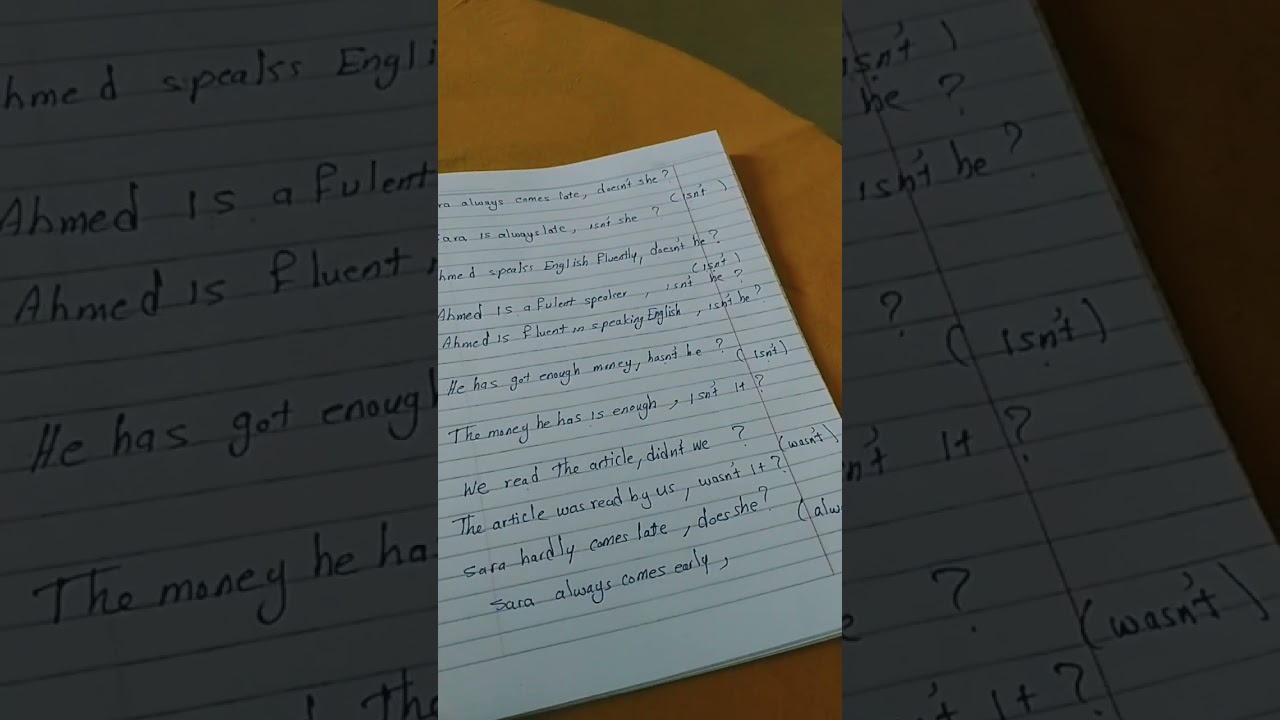 ra always comes late, doesn't she?
(isn't)
Sara is always late, isn't she?
hmed speaks English fluently, doesn't he?
(isn't)
Ahmed is a fulent speaker, isn't he?
Ahmed is fluent in speaking English, isn't he?
He has got enough money, hasn't he?
(isn't)
The money he has is enough, isn't it?
We read the article, didn't we?
(wasn't)
The article was read by us, wasn't it?
Sara hardly comes late, does she?
(alw
Sara always comes early,